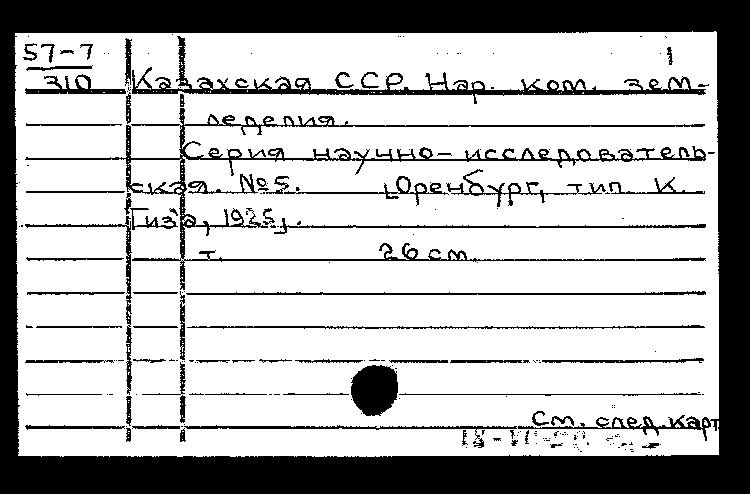 57-7 1
310 Казахская ССР. Нар. ком. зем-
леделия.
Серия научно-исследователь-
ская. №5. [Оренбург, тип. К.
Гиз'а, 1925].
т. 26 см.
См. след. карт